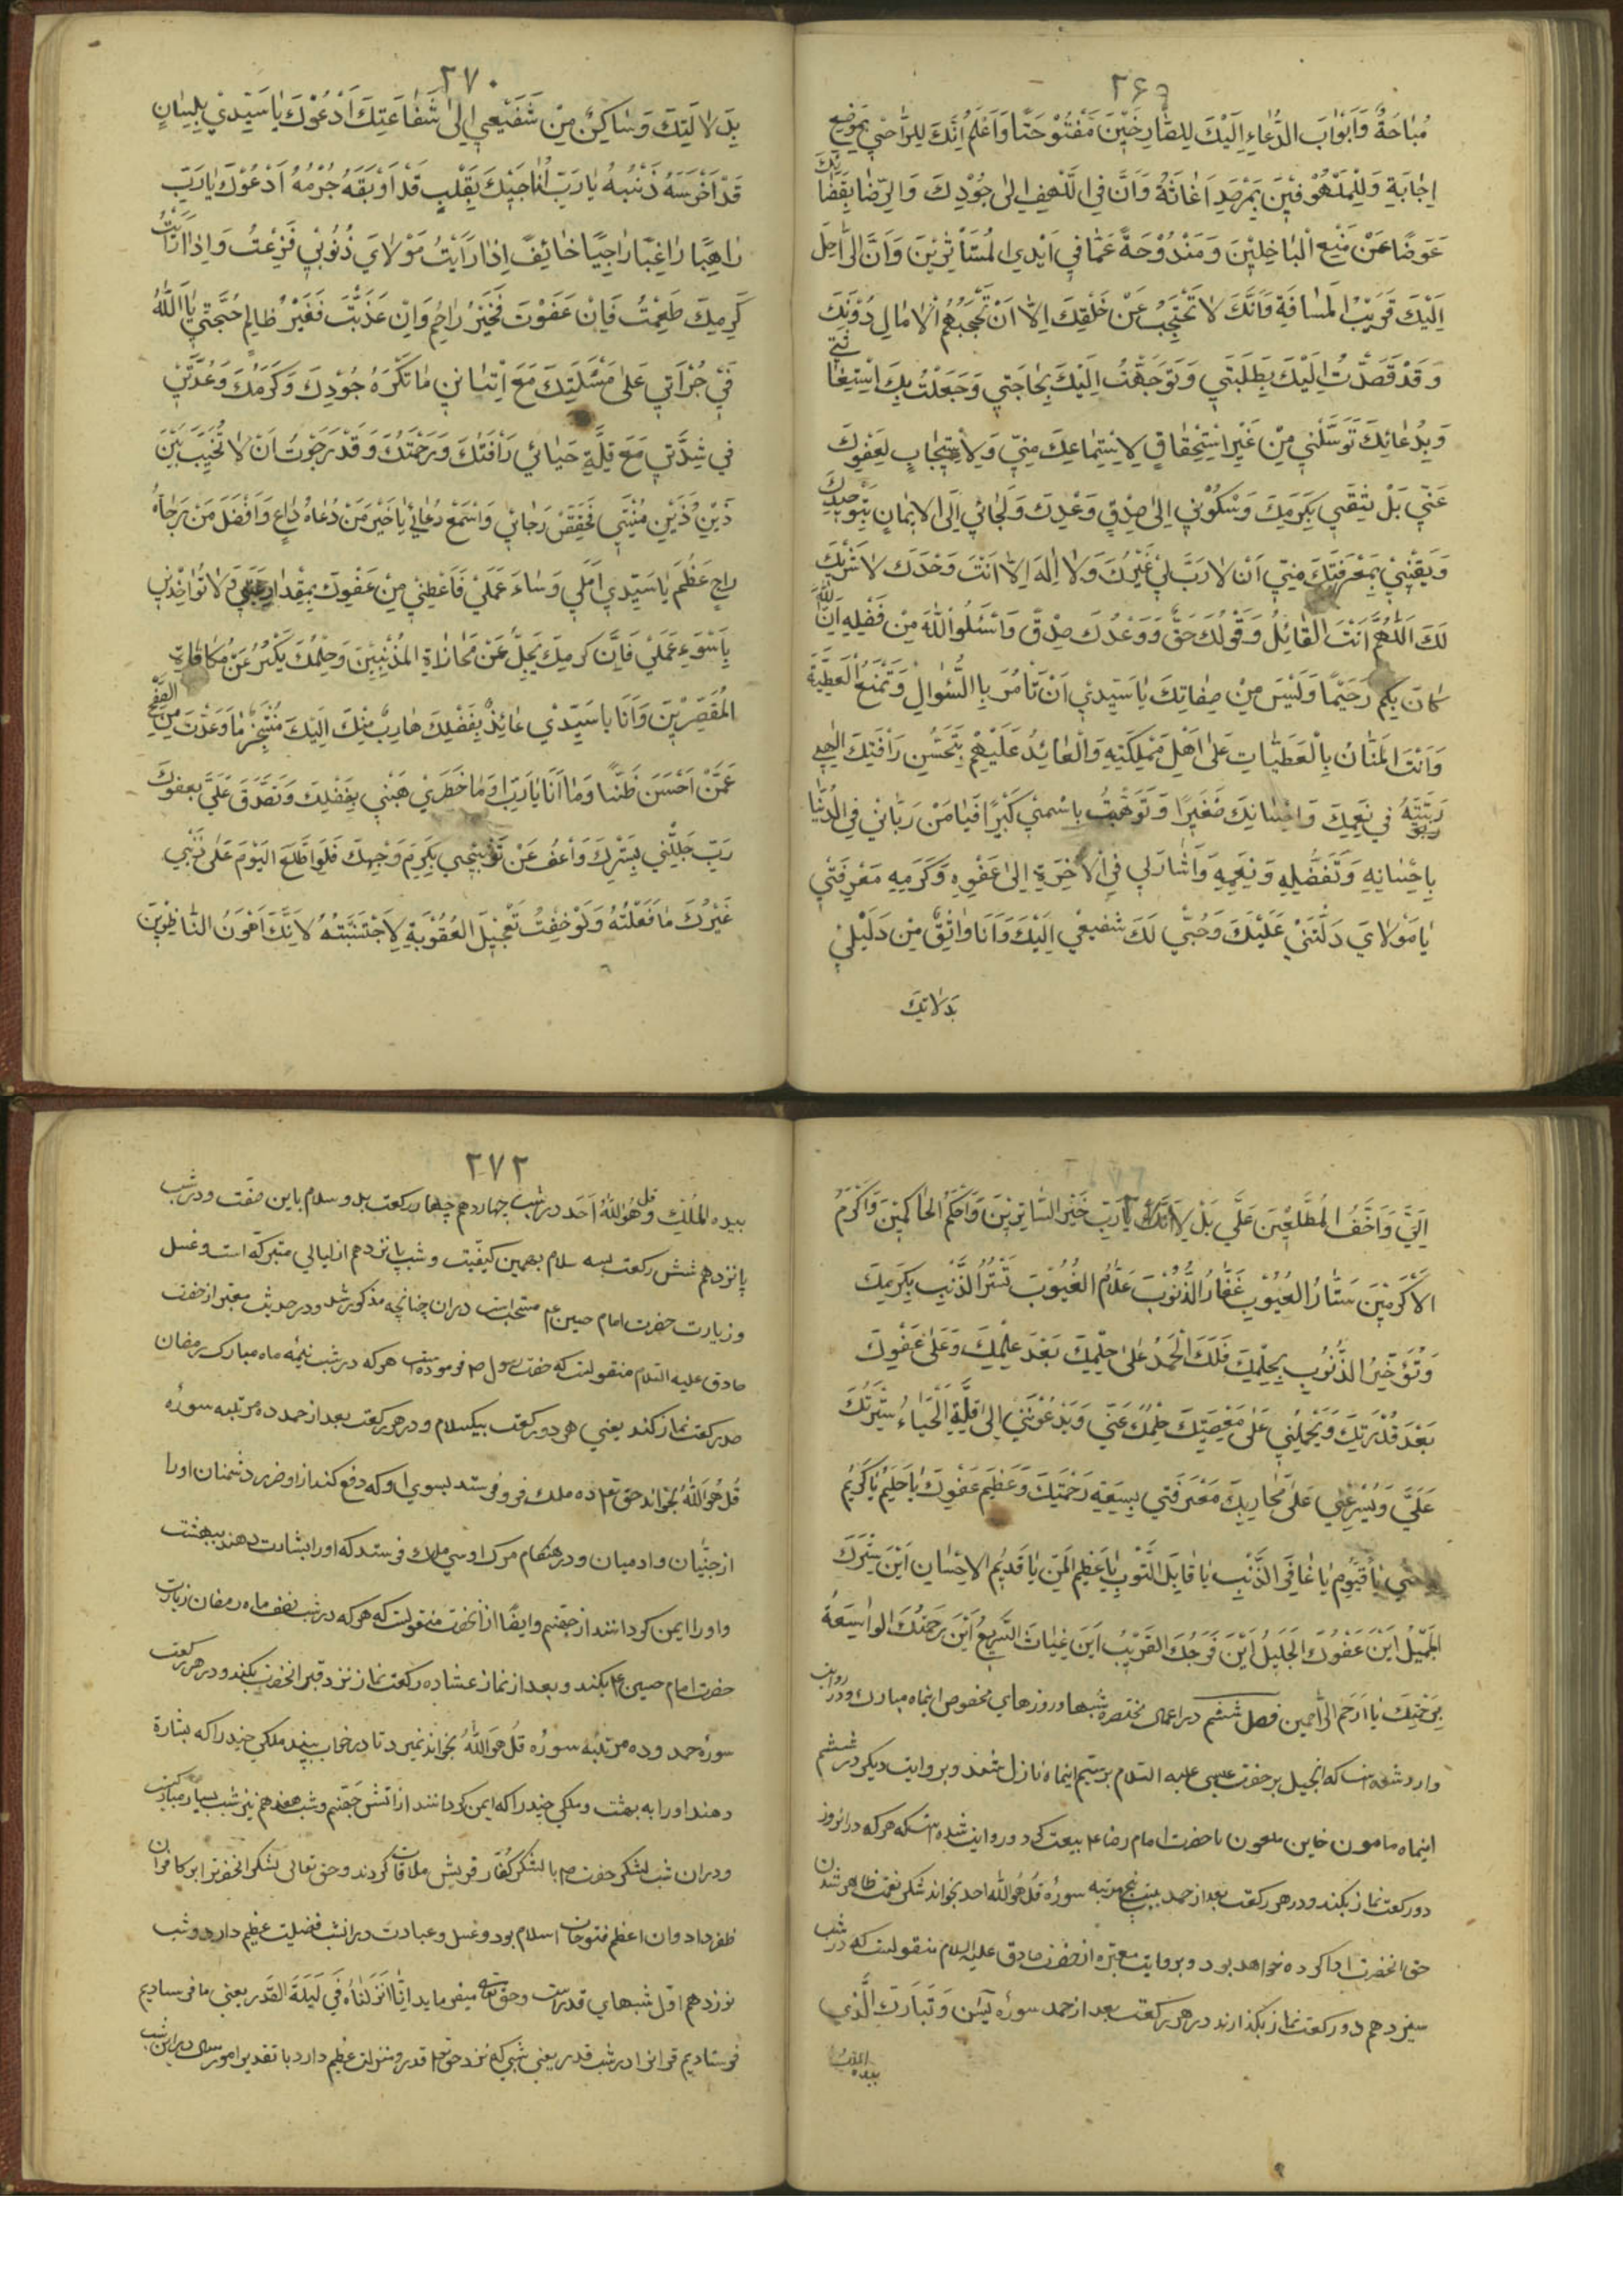 ۲۶۹
مُبَاحَةً وَاَبْوَابَ الدُّعَاءِ اِلَيْكَ لِلصَّارِخِيْنَ مَفْتُوْحَتًا وَاَعْلَمُ اِنَّكَ لِلرَّاجِيْ بِمَوْضِعِ
اِجَابَةٍ وَلِلْمَلْهُوْفِيْنَ بِمَرْصَدِ اَغَاثَةٍ وَاَنَّ فِى الَّلهْفِ اِلٰى جُوْدِكَ وَالرِّضَا بِقَضَائِكَ
عَوَضًا عَنْ مَنْعِ الْبَاخِلِيْنَ وَمَنْدُوْحَةً عَمَّا فِي اَيْدِى الْمُسْتَأْثِرِيْنَ وَاَنَّ الرَّاحِلَ
اِلَيْكَ قَرِيْبُ الْمَسَافَةِ وَاَنَّكَ لَا تَحْتَجِبُ عَنْ خَلْقِكَ اِلَّا اَنْ تَحْجُبَهُمُ الْاٰمَالِ دُوْنَكَ
وَقَدْ قَصَدْتُ اِلَيْكَ بِطَلِبَتِي وَتَوَجَّهْتُ اِلَيْكَ بِحَاجَتِي وَجَعَلْتُ بِكَ اسْتِغَاثَتِي
وَبِدُعَائِكَ تَوَسُّلِي مِنْ غَيْرِ اسْتِحْقَاقٍ لِاسْتِمَاعِكَ مِنِّي وَلَا اسْتِيْجَابٍ لِعَفْوِكَ
عَنِّي بَلْ لِثِقَتِي بِكَرَمِكَ وَسُكُوْنِي اِلٰى صِدْقِ وَعْدِكَ وَلَجَائِي اِلَى الْاِيْمَانِ بِتَوْحِيْدِكَ
وَيَقِيْنِيْ بِمَعْرِفَتِكَ مِنِّي اَنْ لَا رَبَّ لِيْ غَيْرُكَ وَلَا اِلٰهَ اِلَّا اَنْتَ وَحْدَكَ لَا شَرِيْكَ
لَكَ اَللّٰهُمَّ اَنْتَ الْقَائِلُ وَقَوْلُكَ حَقٌّ وَوَعْدُكَ صِدْقٌ وَاسْئَلُوا اللّٰهَ مِنْ فَضْلِهِ اِنَّ اللّٰهَ
كَانَ بِكُمْ رَحِيْمًا وَلَيْسَ مِنْ صِفَاتِكَ يَا سَيِّدِيْ اَنْ تَأْمُرَ بِالسُّئَوالِ وَتَمْنَعَ الْعَطِيَّةَ
وَاَنْتَ الْمَنَّانُ بِالْعَطِيَّاتِ عَلٰى اَهْلِ مَمْلِكَتِهِ وَالْعَائِدُ عَلَيْهِمْ بِتَحَنُّنِ رَأْفَتِكَ اِلٰهِي
رَبَّيْتَنِي فِي نِعَمِكَ وَاِحْسَانِكَ صَغِيْرًا وَنَوَّهْتَ بِاسْمِيْ كَبِيْرًا فَيَا مَنْ رَبَّانِيْ فِي الدُّنْيَا
بِاِحْسَانِهِ وَتَفَضُّلِهِ وَنِعَمِهِ وَاَشَارَ لِي فِي الْاٰخِرَةِ اِلٰى عَفْوِهِ وَكَرَمِهِ مَعْرِفَتِي
يَا مَوْلَايَ دَلَّتْنِيْ عَلَيْكَ وَحُبِّي لَكَ شَفِيْعِي اِلَيْكَ وَاَنَا وَاثِقٌ مِنْ دَلِيْلِيْ
بدلالتك
۲۷۰
بِدَلَالَتِكَ وَسَاكِنٌ مِنْ شَفِيْعِي اِلٰى شَفَاعَتِكَ اَدْعُوْكَ يَا سَيِّدِيْ بِلِسَانٍ
قَدْ اَخْرَسَهُ ذَنْبُهُ يَا رَبِّ اُنَاجِيْكَ بِقَلْبٍ قَدْ اَوْبَقَهُ جُرْمُهُ اَدْعُوْكَ يَا رَبِّ
رَاهِبًا رَاغِبًا رَاجِيًا خَائِفًا اِذَا رَاَيْتُ مَوْلَايَ ذُنُوْبِيْ فَزِعْتُ وَاِذَا رَاَيْتُ
كَرَمِكَ طَمِعْتُ فَاِنْ عَفَوْتَ فَخَيْرُ رَاحِمٍ وَاِنْ عَذَّبْتَ فَغَيْرُ ظَالِمٍ حُجَّتِي يَا اَللّٰهُ
فِيْ جُرْاَتِي عَلٰى مَسْئَلَتِكَ مَعَ اِتْيَانِيْ مَا تَكْرَهُ جُوْدُكَ وَكَرَمُكَ وَعُدَّتِيْ
فِي شِدَّتِي مَعَ قِلَّةِ حَيَائِي رَأْفَتُكَ وَرَحْمَتُكَ وَقَدْ رَجَوْتُ اَنْ لَا تُخَيِّبَ بَيْنَ
ذَيْنِ وَذَيْنِ مُنْيَتِي فَحَقِّقْ رَجَائِيْ وَاسْمَعْ دُعَائِي يَا خَيْرَ مَنْ دَعَاهُ دَاعٍ وَاَفْضَلَ مَنْ رَجَاهُ
رَاجٍ عَظُمَ يَا سَيِّدِي اَمَلِي وَسَاءَ عَمَلِيْ فَاَعْطِنِيْ مِنْ عَفْوِكَ بِمِقْدَارِ اَمَلِي وَلَا تُؤَاخِذْنِي
بِاَسْوَءِ عَمَلِيْ فَاِنَّ كَرَمِكَ يَجِلُّ عَنْ مُجَازَاةِ الْمُذْنِبِيْنَ وَحِلْمُكَ يَكْبُرُ عَنْ مُكَافَاةِ
الْمُقَصِّرِيْنَ وَاَنَا يَا سَيِّدِيْ عَائِذٌ بِفَضْلِكَ هَارِبٌ مِنْكَ اِلَيْكَ مُتَنَجِّزٌ مَا وَعَدْتَ مِنَ الصَّفْحِ
عَمَّنْ اَحْسَنَ ظَنًّا وَمَا اَنَا يَا رَبِّ وَمَا خَطَرِيْ هَبْنِي بِفَضْلِكَ وَتَصَدَّقْ عَلَيَّ بِعَفْوِكَ
رَبِّ جَلِّلْنِي بِسِتْرِكَ وَاعْفُ عَنْ تَوْبِيْخِي بِكَرَمِ وَجْهِكَ فَلَوِ اطَّلَعَ الْيَوْمَ عَلٰى ذَنْبِي
غَيْرُكَ مَا فَعَلْتُهُ وَلَوْ خِفْتُ تَعْجِيْلَ الْعُقُوْبَةِ لَاجْتَنَبْتُهُ لَا لِاَنَّكَ اَهْوَنُ النَّاظِرِيْنَ
اِلَيَّ وَاَخَفُّ الْمُطَّلِعِيْنَ عَلَيَّ بَلْ لِاَنَّكَ يَا رَبِّ خَيْرُ السَّاتِرِيْنَ وَاَحْكَمُ الْحَاكِمِيْنَ وَاَكْرَمُ
الْاَكْرَمِيْنَ سَتَّارُ الْعُيُوْبِ غَفَّارُ الذُّنُوْبِ عَلَّامُ الْغُيُوْبِ تَسْتُرُ الذَّنْبَ بِكَرَمِكَ
وَتُؤَخِّرُ الذُّنُوْبَ بِحِلْمِكَ فَلَكَ الْحَمْدُ عَلٰى حِلْمِكَ بَعْدَ عِلْمِكَ وَعَلٰى عَفْوِكَ
بَعْدَ قُدْرَتِكَ وَيَحْمِلُنِي عَلٰى مَعْصِيَتِكَ حِلْمُكَ عَنِّي وَيَدْعُوْنِيْ اِلٰى قِلَّةِ الْحَيَاءِ سِتْرُكَ
عَلَيَّ وَيُسْرِعُنِي عَلٰى مَحَارِمِكَ مَعْرِفَتِي بِسَعَةِ رَحْمَتِكَ وَعَظِيْمِ عَفْوِكَ يَا حَلِيْمُ يَا كَرِيْمُ
يَا حَيُّ يَا قَيُّوْمُ يَا غَافِرَ الذَّنْبِ يَا قَابِلَ التَّوْبِ يَا عَظِيْمَ الْمَنِّ يَا قَدِيْمَ الْاِحْسَانِ اَيْنَ سِتْرُكَ
الْجَمِيْلُ اَيْنَ عَفْوُكَ الْجَلِيْلُ اَيْنَ فَرَجُكَ الْقَرِيْبُ اَيْنَ غِيَاثُكَ السَّرِيْعُ اَيْنَ رَحْمَتُكَ الْوَاسِعَةُ
بِرَحْمَتِكَ يَا اَرْحَمَ الرَّاحِمِيْنَ فصل ششم در اعمال مختصره شبها و روزهاى مخصوص اينماه مبارك و در روايت
وارد شده است كه انجيل بر حضرت عيسى عليه السلام در سيم اينماه نازل شد و بروايت ديكر در ششم
اينماه مامون خاين ملعون با حضرت امام رضا ع بيعت كرد و روايت شده است كه هر كه در انروز
دو ركعت نماز بكند و در هر ركعت بعد از حمد بيست و پنج مرتبه سوره قل هو الله احد بخواند شكر نعمت ظاهر شدن
حق انحضرت ادا كرده خواهد بود و بروايت معتبره از حضرت صادق عليه السلام منقولست كه در شب
سيزدهم دو ركعت نماز بكذارند در هر ركعت بعد از حمد سوره يٰسٓ وَتَبَارَكَ الَّذِي
بيده الملك
۲۷۲
بيده الملك و قل هُوَ اللّٰهُ اَحَد در شب چهاردهم چهار ركعت بدو سلام باين صفت و در شب
پانزدهم شش ركعت بسه سلام بهمين كيفيت و شب پانزدهم از ليالى متبركه است و غسل
و زيارت حضرت امام حسين ع مستحب است دران چنانچه مذكور شد و در حديث معتبر از حضرت
صادق عليه السلام منقولست كه حضرت رسول ص فرموده است هر كه در شب نيمه ماه مبارك رمضان
صد ركعت نماز كند يعنى هر دو ركعت بيكسلام و در هر ركعت بعد از حمد ده مرتبه سوره
قُل هُوَ اللّٰهُ بخواند حق تعالى ده ملك فرو فرستد بسوى او كه دفع كند از او ضرر دشمنان او را
از جنيّان و ادميان و در هنكام مرك او سى ملك فرستد كه او را بشارت دهند ببهشت
و او را ايمن كردانند از جهنم و ايضًا از انحضرت منقولست كه هر كه در شب نصف ماه رمضان زيارت
حضرت امام حسين ع بكند و بعد از نماز عشا ده ركعت نماز نزد قبر انحضرت بكند و در هر ركعت
سوره حمد و ده مرتبه سوره قُل هُوَ اللّٰهُ بخواند نميرد تا در خواب ببيند ملكى چند را كه بشارة
دهند او را به بهشت و ملكى چند را كه ايمن كردانند از اتش جهنم و شب هفدهم نيز شب بسيار مباركيست
و دران شب لشكر حضرت ص با لشكر كفّار قريش ملاقات كردند و حق تعالى لشكر انحضرت را بر كافران
ظفر داد و ان اعظم فتوحات اسلام بود و غسل و عبادت در انشب فضيلت عظيم دارد و شب
نوزدهم اوّل شبهاى قدرست و حق تعالى ميفرمايد اِنَّا اَنْزَلْنَاهُ فِي لَيْلَةِ الْقَدْرِ يعنى ما فرستاديم
فرستاديم قرانرا در شب قدر يعنى شبى كه نزد حق تعالى قدر و منزلت عظيم دارد يا تقدير امور سال در اين شب